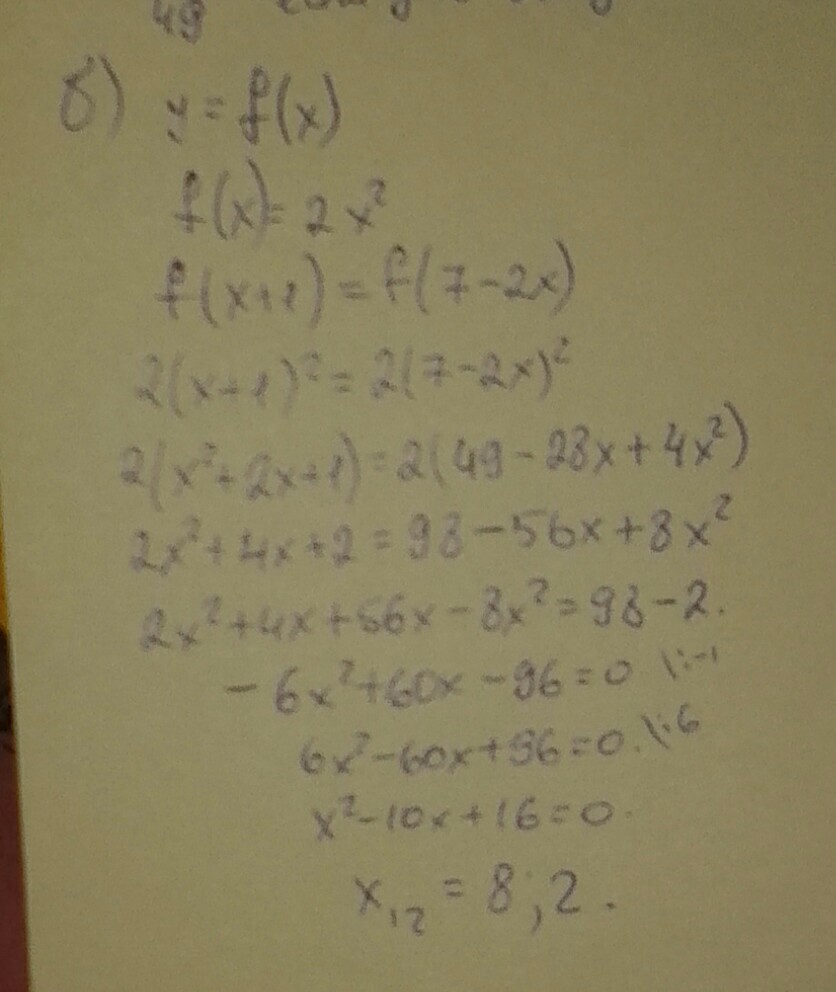 49
б) y = f(x)
f(x) = 2x²
f(x+1) = f(7-2x)
2(x+1)² = 2(7-2x)²
2(x²+2x+1) = 2(49-28x+4x²)
2x²+4x+2 = 98-56x+8x²
2x²+4x+56x-8x² = 98-2.
-6x²+60x-96=0 \:-1
6x²-60x+96=0. \:6
x²-10x+16=0.
x₁₂ = 8; 2.